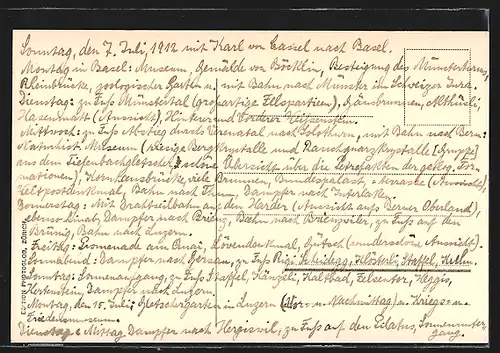 Sonntag, den 7. Juli, 1912 mit Karl von Cassel nach Basel.
Montag in Basel: Museum, Gemälde von Böcklin, Besteigung des Münsterturms,
Rheinbrücke, zoologischer Garten u. mit Bahn nach Münster im Schweizer Jura.
Dienstag: zu Fuss Münstertal (grossartige Felspartieen), Gänsbrunnen, Althüsli,
Hasenmatt (Aussicht), Hinterer und Vorderer Weissenstein.
Mittwoch: zu Fuss Abstieg durch Verenatal nach Solothurn, mit Bahn nach Bern:
Naturhist. Museum (riesige Bergkrystalle und Rauchquarzkrystalle [Gruppe]
aus dem Tiefenbachgletscher, schöne Übersicht über die Petrefakten der geolog. For-
mationen), Kornhausbrücke, viele Brunnen, Bundespalast, Terrasse (Aussicht),
Weltpostdenkmal, Bahn nach Thun, Dampfer nach Interlaken.
Donnerstag: Mit Drahtseilbahn auf den Harder (Aussicht aufs Berner Oberland),
ebenso hinab, Dampfer nach Brienz, Bahn nach Brienzwiler, zu Fuss auf den
Brünig, Bahn nach Luzern.
Freitag: Promenade am Quai, Löwendenkmal, Gütsch (wundervolle Aussicht).
Sonnabend: Dampfer nach Gersau, zu Fuss Rigi Scheidegg, Klösterli, Staffel, Kulm.
Sonntag: Sonnenaufgang, zu Fuss Staffel, Känzeli, Kaltbad, Felsentor, Weggis,
Hertenstein, Dampfer nach Luzern.
Montag, den 15. Juli: Gletschergarten in Luzern (Vor- u. Nachmittag) u. Kriegs- u.
Friedensmuseum.
Dienstag: Mittag Dampfer nach Hergiswil, zu Fuss auf den Pilatus, Sonnenunter-
gang.
EDITION PHOTOGLOB, ZÜRICH